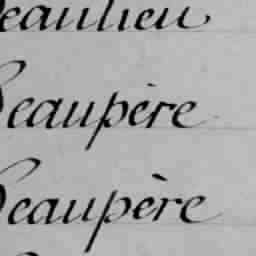 Beaulieu
Beaupère
Beaupère